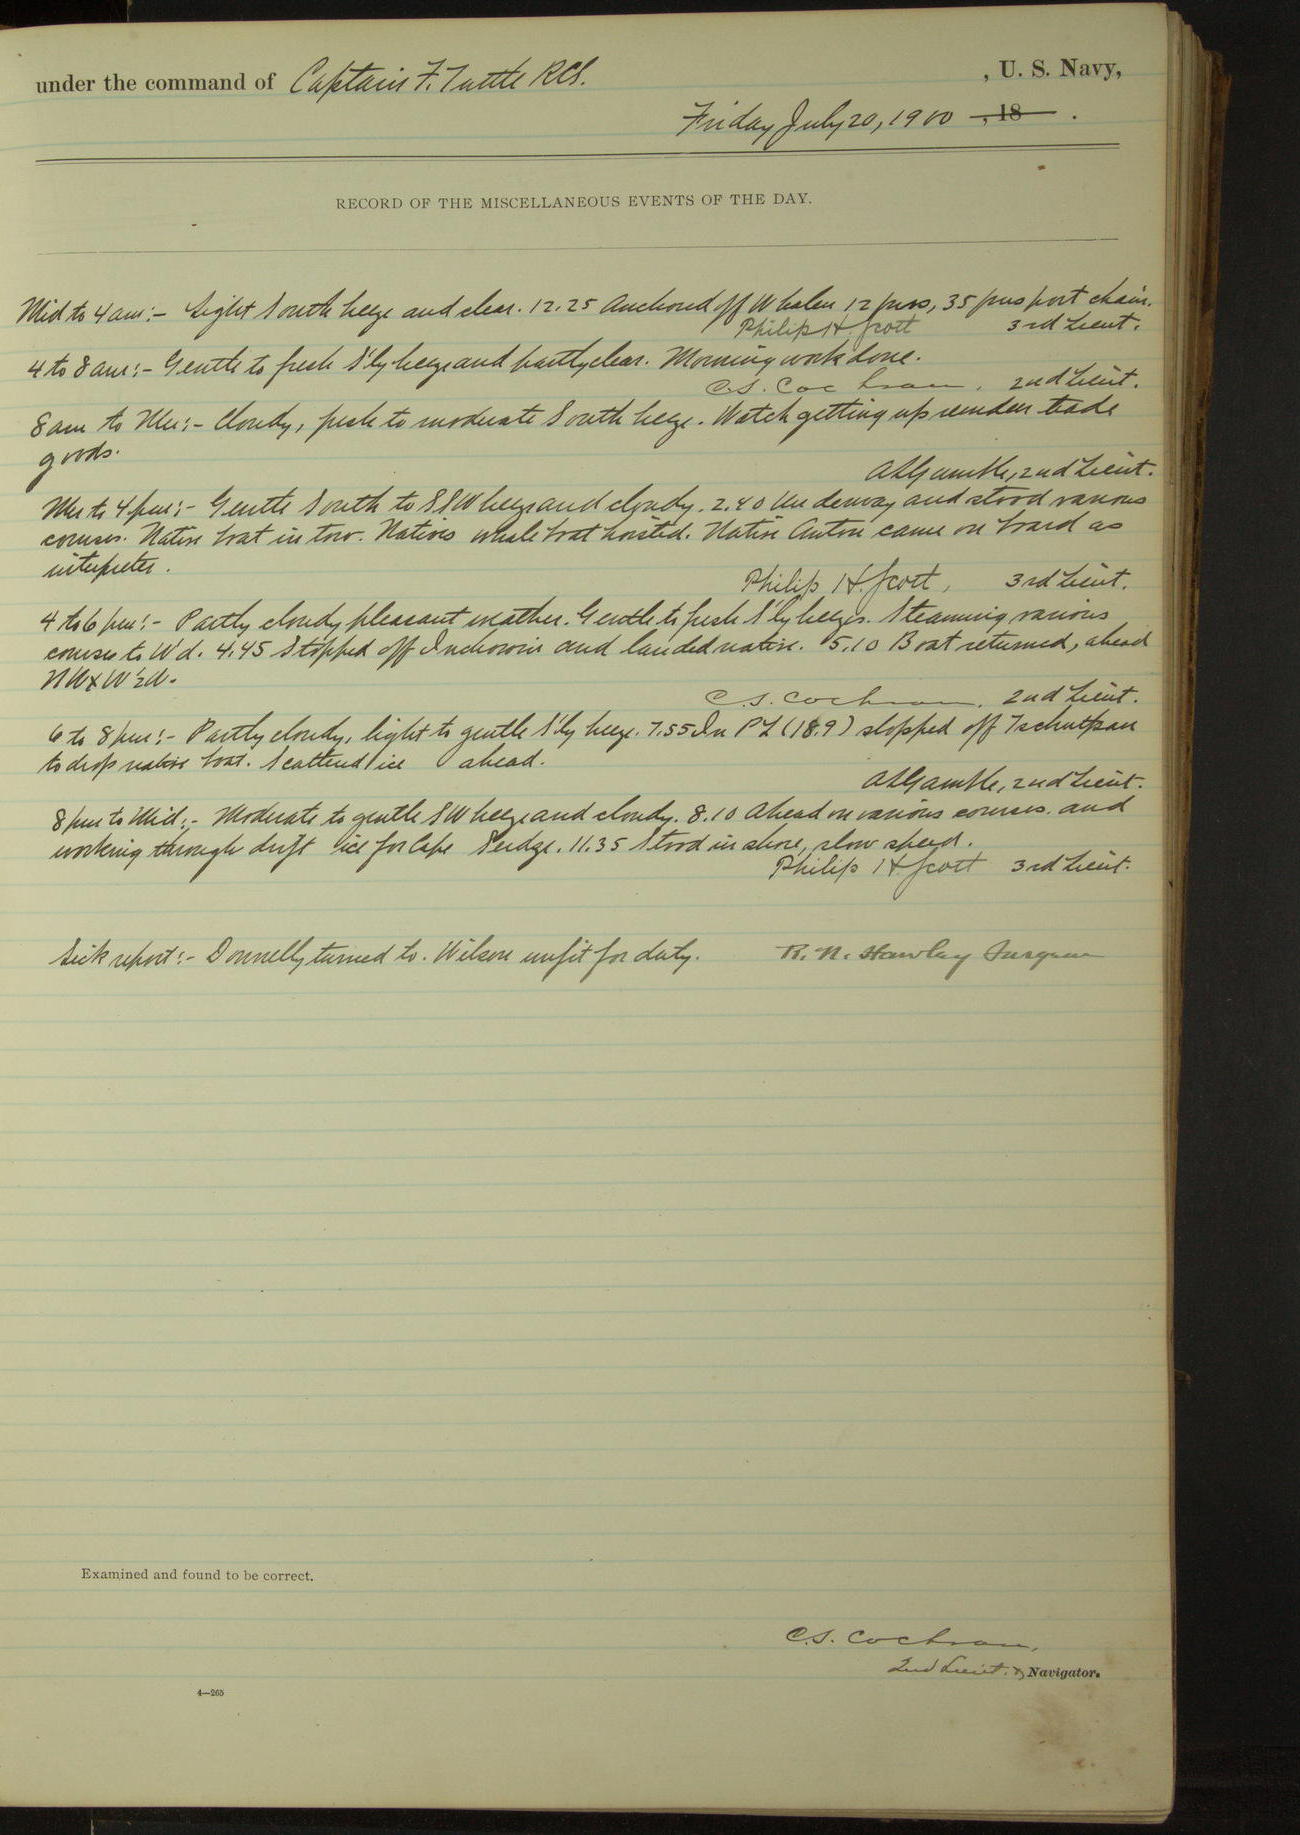 under the command of Captain F. Tuttle RCS. , U. S. Navy,
Friday July 20, 1900 , 18 .
RECORD OF THE MISCELLANEOUS EVENTS OF THE DAY.
Mid to 4 am:- Light South breeze and clear. 12.25 Anchored off Whalen 12 fms, 35 fms port chain.
Philip H. Scott 3rd Lieut.
4 to 8 am:- Gentle to fresh S'ly breeze and partly clear. Morning work done.
C.S. Cochran. 2nd Lieut.
8 am to Mer:- Cloudy, fresh to moderate South breeze. Watch getting up reindeer trade
goods.
A L Gamble, 2nd Lieut.
Mer to 4 pm:- Gentle South to SSW breeze and cloudy. 2.40 Underway and stood various
courses. Native boat in tow. Natives whale boat hoisted. Native Anton came on board as
interpreter.
Philip H. Scott, 3rd Lieut.
4 to 6 pm:- Partly cloudy pleasant weather. Gentle to fresh S'ly breezes. Steaming various
courses to W'd. 4.45 Stopped off Inchowin and landed native. 5.10 Boat returned, ahead
NWxW½W.
C.S. Cochran. 2nd Lieut.
6 to 8 pm:- Partly cloudy, light to gentle S'ly breeze. 7.55 In P L (18.9) stopped off Tschutpan
to drop native boat. Scattered ice ahead.
A L Gamble, 2nd Lieut.
8 pm to Mid:- Moderate to gentle SW breeze and cloudy. 8.10 Ahead on various courses and
working through drift ice for Cape Serdze. 11.35 Stood in shore, slow speed.
Philip H Scott 3rd Lieut.
Sick report:- Donnelly turned to. Wilson unfit for duty. R. N. Hawley Surgeon
Examined and found to be correct.
C.S. Cochran,
2nd Lieut. & Navigator.
4—265